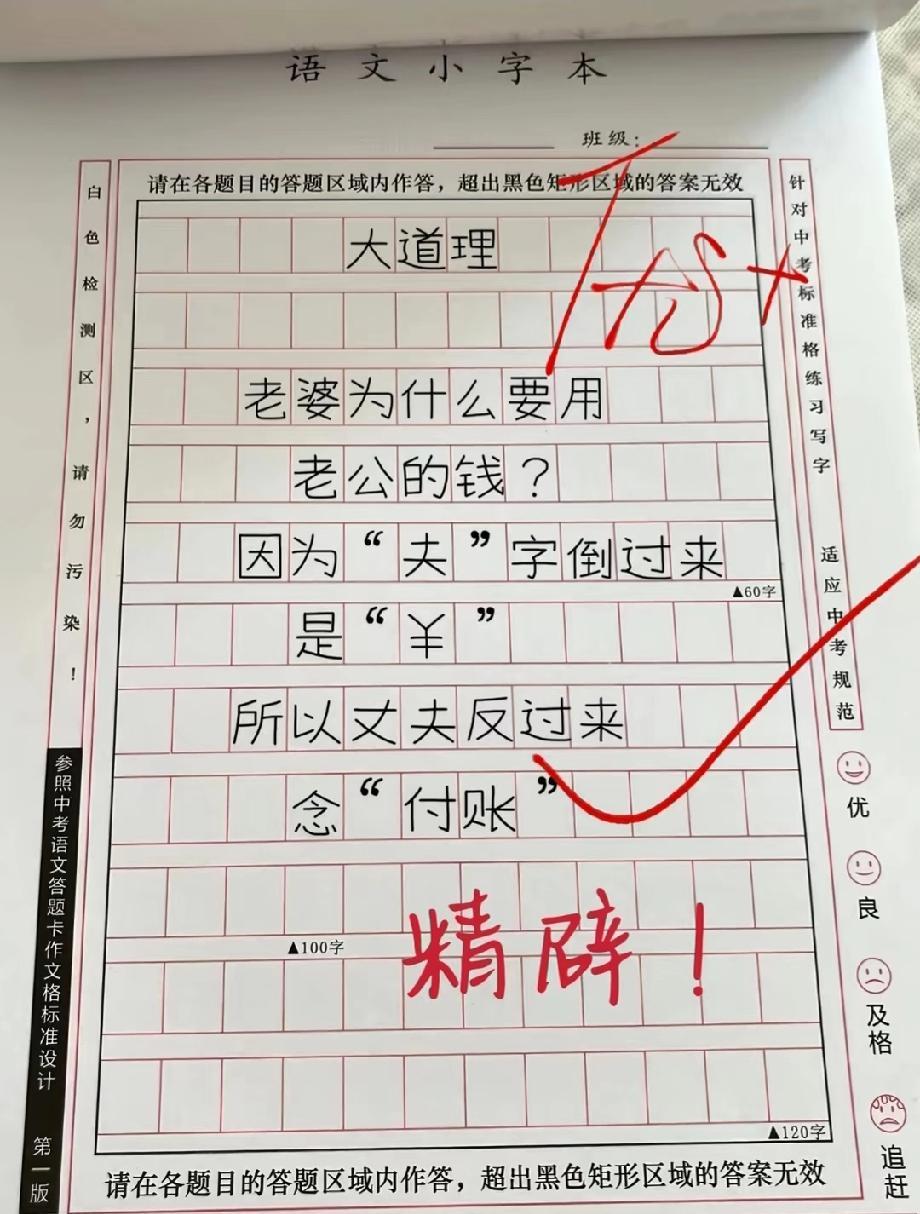 语文小字本
班级：
请在各题目的答题区域内作答，超出黑色矩形区域的答案无效
大道理
老婆为什么要用
老公的钱？
因为“夫”字倒过来
▲60字
是“￥”
所以丈夫反过来
念“付账”
▲100字
精辟！
▲120字
请在各题目的答题区域内作答，超出黑色矩形区域的答案无效
白色检测区，请勿污染！
参照中考语文答题卡作文格标准设计 第一版
针对中考标准格练习写字 适应中考规范
优
良
及格
追赶